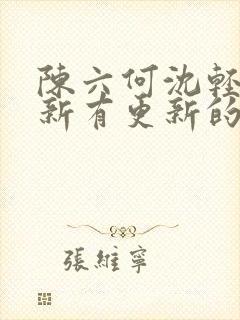 陳六何沈輕
新有更新的
張維寧